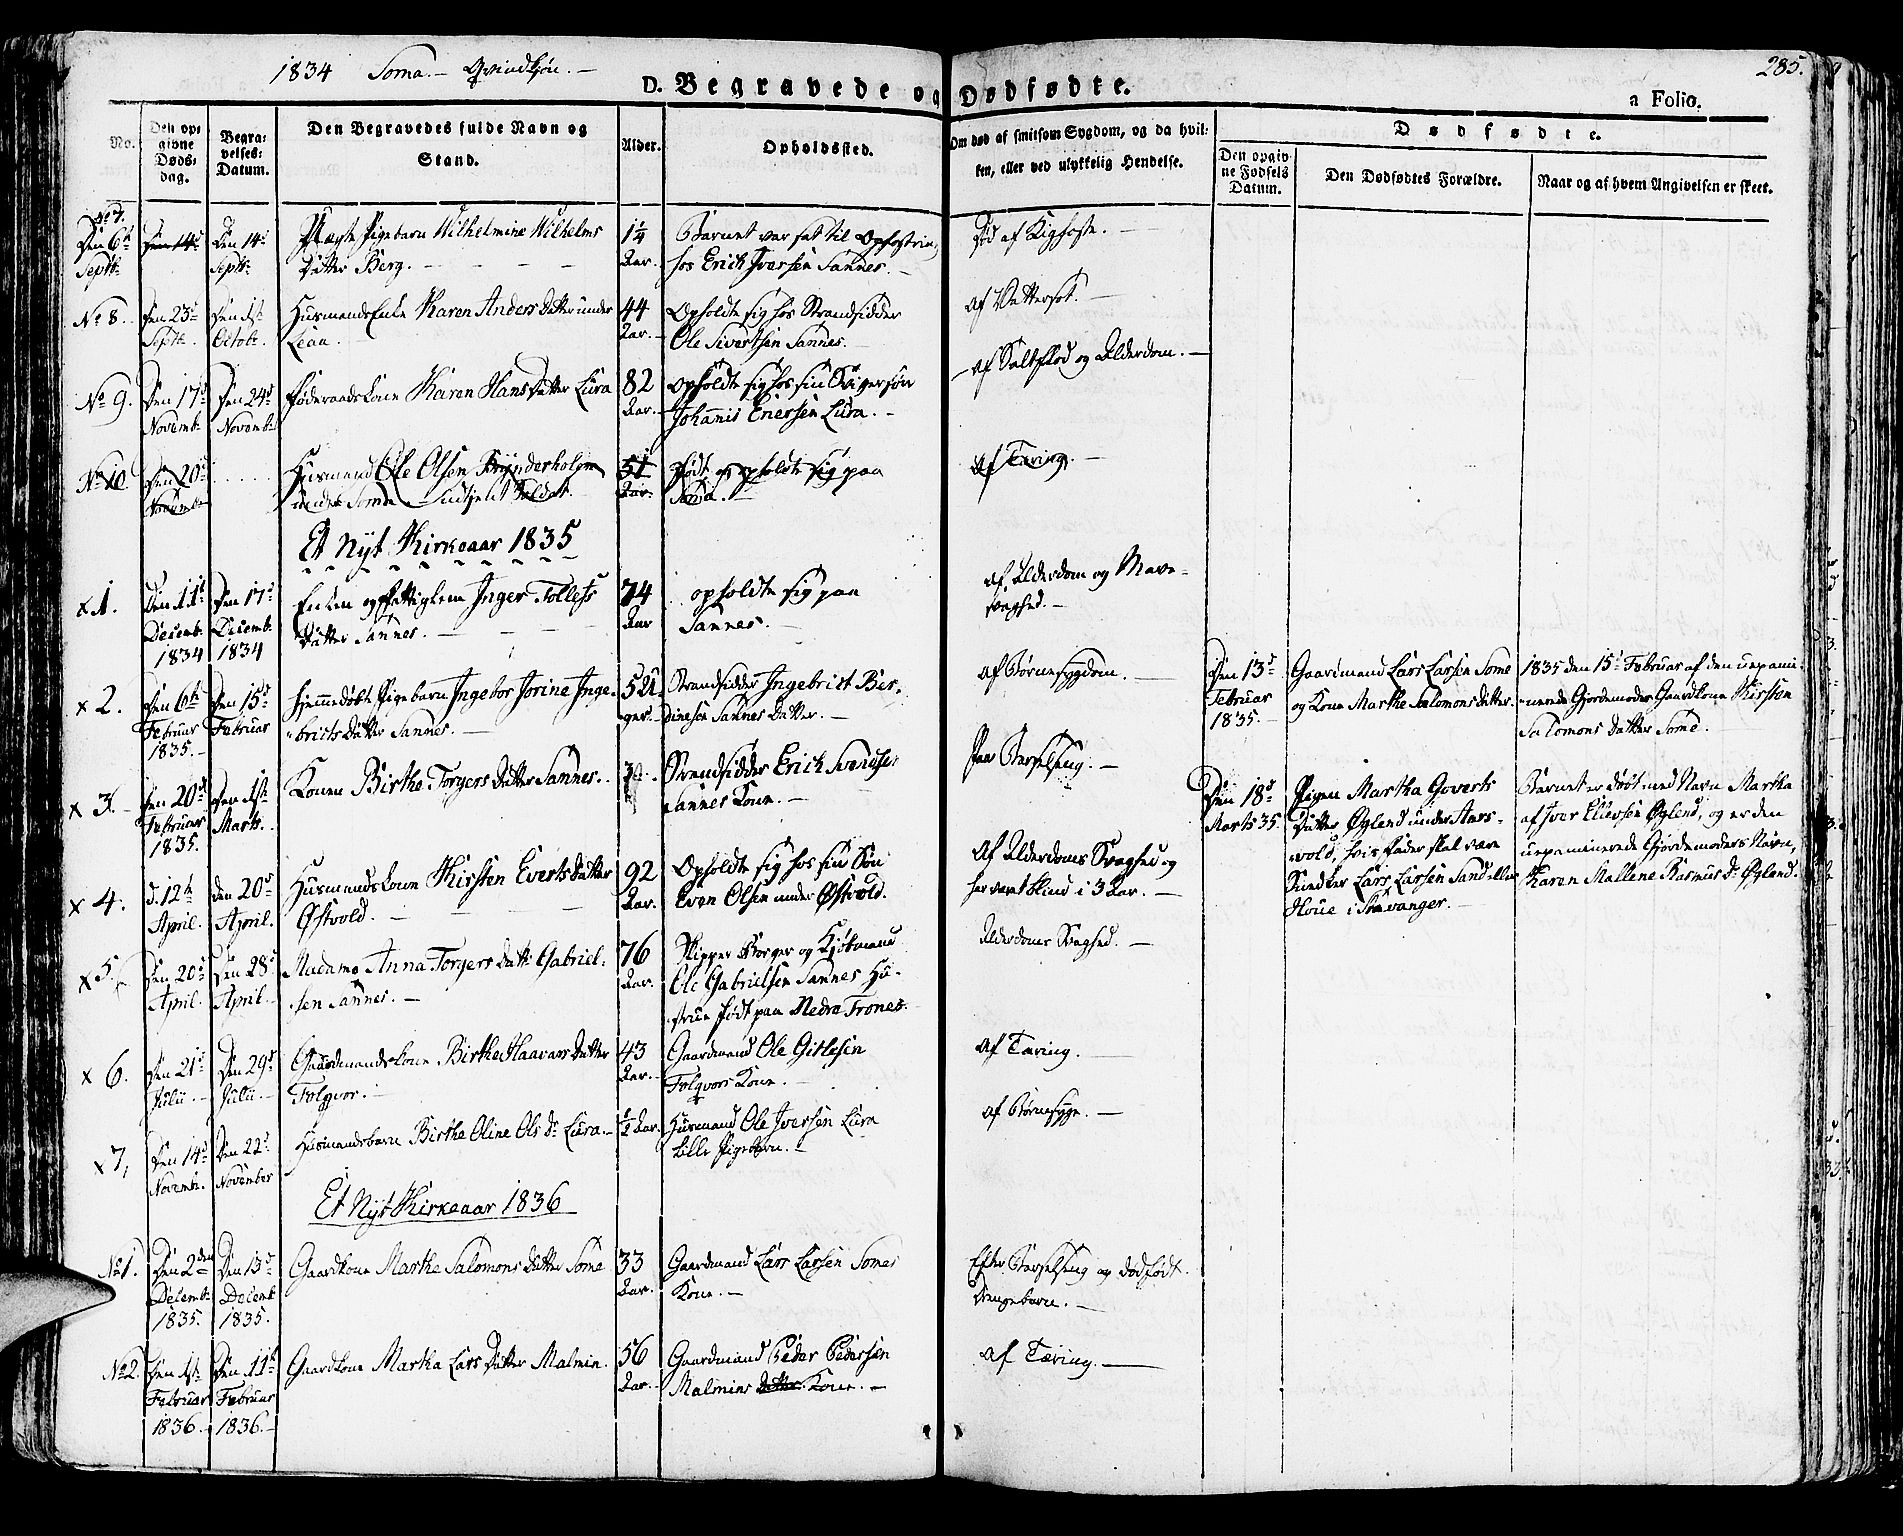 1834 Soma.— Qvindkjön.—
285.
D. Begravede og Dødfødte.
a Folio.
No.
Den opgivne Døds-dag.
Begravelses-Datum.
Den Begravedes fulde Navn og Stand.
Alder.
Opholdssted.
Om død af smitsom Sygdom, og da hvilken, eller ved ulykkelig Hendelse.
Dødfødte.
Den opgivne Fødsels Datum.
Den Dødfødtes Forældre.
Naar og af hvem Angivelsen er skeet.
No 7.
Den 6te Septbr.
Den 14de
Den 14de Septbr.
Uægte Pigebarn Wilhelmine Wilhelms
Datter Berg.
1 1/4 Aar.
Barnet var sat til Opfostring
hos Erick Iversen Sannes.
Død af Kighoste.—
No 8.
Den 23de Septbr.
Den 1ste Octobr.
Husmands Enke Karen Anders Datter under
44 Aar.
Opholdte sig hos Strandsidder
Ole Sivertsen Sannes.
Af Vattersot.—
No 9.
Den 17de Novembr.
Den 24de Novembr.
Føderaadskone Karen Hans Datter Lura
82 Aar.
Opholdte sig hos sin Svigersøn
Johannis Lura.—
af og Alderdom.—
No 10.
Den 20de Novembr.
Husmand Ole Olsen
under Soma Soldat.
51 Aar.
Født og opholdte sig paa
Soma.
Af Tæring.—
Et Nyt Kirkeaar 1835
x 1.
Den 11te Decemb. 1834
Den 17de Decemb. 1834
Enken og Fattiglem Inger Tollefs
Datter Sannes.—
74 Aar
opholdte sig paa
Sannes.—
af Alderdom og Mave-
svaghed.—
x 2.
Den 6te Februar 1835.—
Den 15de Februar
Hjemmedøbt Pigebarn Ingebor Jorine Inge-
brits Datter Sannes.—
5 Uger.
Strandsidder Ingebrict Ber-
dinesen Sannes Datter.—
af Børnesygdom.—
Den 13de Februar 1835.—
Gaardmand Lars Larsen Some
og Kone Marthe Salomons Datter
1835 den 15de Februar af den uexami-
nerede Gjordemoder Gaardkone Kirsten
Salomons Datter Some.
x 3.
Den 20de Februar 1835.
Den 1ste Marts.
Konen Birthe Torgers Datter Sannes.
Strandsidder Erick Svendsen
Sannes Kone.—
Paa Barselseng.—
Den 18de Marts 35.
Pigen Martha Goverts
Datter Øglend under Aars-
vold, hvis Fader skal være
Lars Larsen
i Stavanger.—
Barnet er døbt med Navn Martha
af Iver Ellevsen Øglend, og er den
uexaminerede Gjordemoders Navn,
Karen Mallene Rasmus Dr Øglend.
x 4.
d. 12te April.
den 20de April.
Husmandskone Kirsten Everts Datter
Østvold.
92 Aar.
Opholdte sig hos sin Søn
Even Olsen under Østvold.
Af Alderdoms Svaghed og
har været blind i 3 Aar.—
x 5.
Den 20de April.
Den 28de April.
Madame Anna Torgers Datt. Gabriel-
sen Sannes.—
76 Aar.
Skipper Borger og Kjøbmand
Ole Gabrielsen Sannes Hu-
strue født paa Nedre Trones.
Alderdoms Svaghed.—
x 6.
Den 21de Julii.—
Den 29de Julii.—
Gaardmandskone Birthe Haavars Datter
Folqvor.—
43 Aar.
Gaardmand Ole Gitlesen
Folqvors Kone.—
Af Tæring.
x 7,
Den 14de Novemb.
Den 22de November
Husmandsbarn Birthe Oline Ols Dr Lura.—
1/2 Aar.
Husmand Ole Iversen Lura
Lille Pigebarn.—
af Børnesyge.—
Et Nyt Kirkeaar 1836
No 1.
Den 2den Decemb. 1835.
Den 13de Decemb. 1835.
Gaardkone Marthe Salomons Datter Some
33 Aar.
Gaardmand Lars Larsen Somes
Kone.—
Efter Barselseng og dødfødt
Drengebarn.—
No 2.
Den 1ste Februar 1836.—
Den 11te Februar 1836.—
Gaardkone Martha Lars Datter Malmin.
56 Aar.
Gaardmand Peder Pedersen
Malmins Datter Kone.—
af Tæring.—